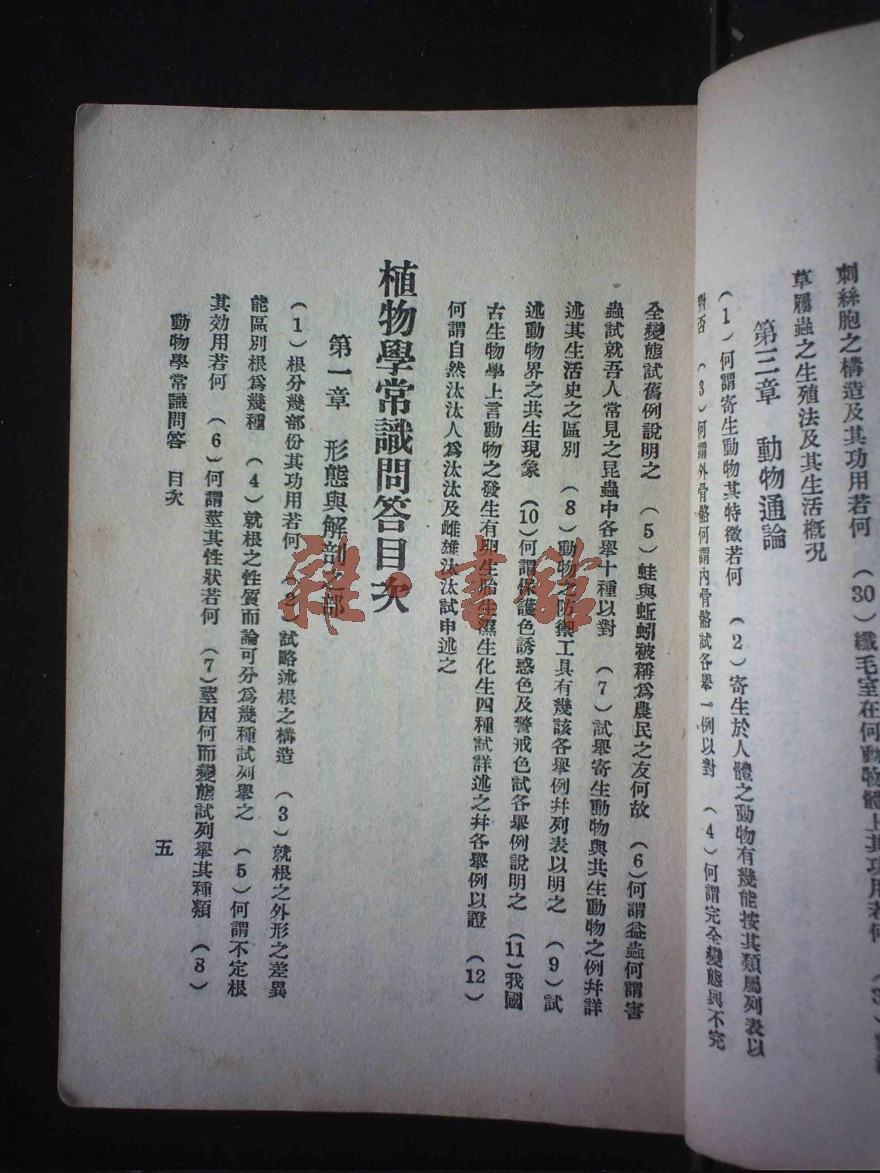 刺絲胞之構造及其功用若何　（30）纖毛室在何動物體上其功用若何
草履蟲之生殖法及其生活概況
第三章　動物通論
（1）何謂寄生動物其特徵若何　（2）寄生於人體之動物有幾能按其類屬列表以
對否　（3）何謂外骨骼何謂內骨骼試各舉一例以對　（4）何謂完全變態與不完
全變態試舊例說明之　（5）蛙與蚯蚓被稱爲農民之友何故　（6）何謂益蟲何謂害
蟲試就吾人常見之昆蟲中各舉十種以對　（7）試舉寄生動物與共生動物之例幷詳
述其生活史之區別　（8）動物之防禦工具有幾該各舉例幷列表以明之　（9）試
述動物界之共生現象　（10）何謂保護色誘惑色及警戒色試各舉例說明之　（11）我國
古生物學上言動物之發生有卵生胎生濕生化生四種試詳述之幷各舉例以證　（12）
何謂自然汰汰人爲汰汰及雌雄汰汰試申述之
植物學常識問答目次
第一章　形態與解剖之部
（1）根分幾部份其功用若何　（2）試略述根之構造　（3）就根之外形之差異
能區別根爲幾種　（4）就根之性質而論可分爲幾種試列舉之　（5）何謂不定根
其効用若何　（6）何謂莖其性狀若何　（7）莖因何而變態試列舉其種類　（8）
動物學常識問答　目次
五
雜·書館